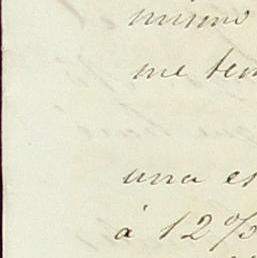 mismo
me ten
una es
á 12%